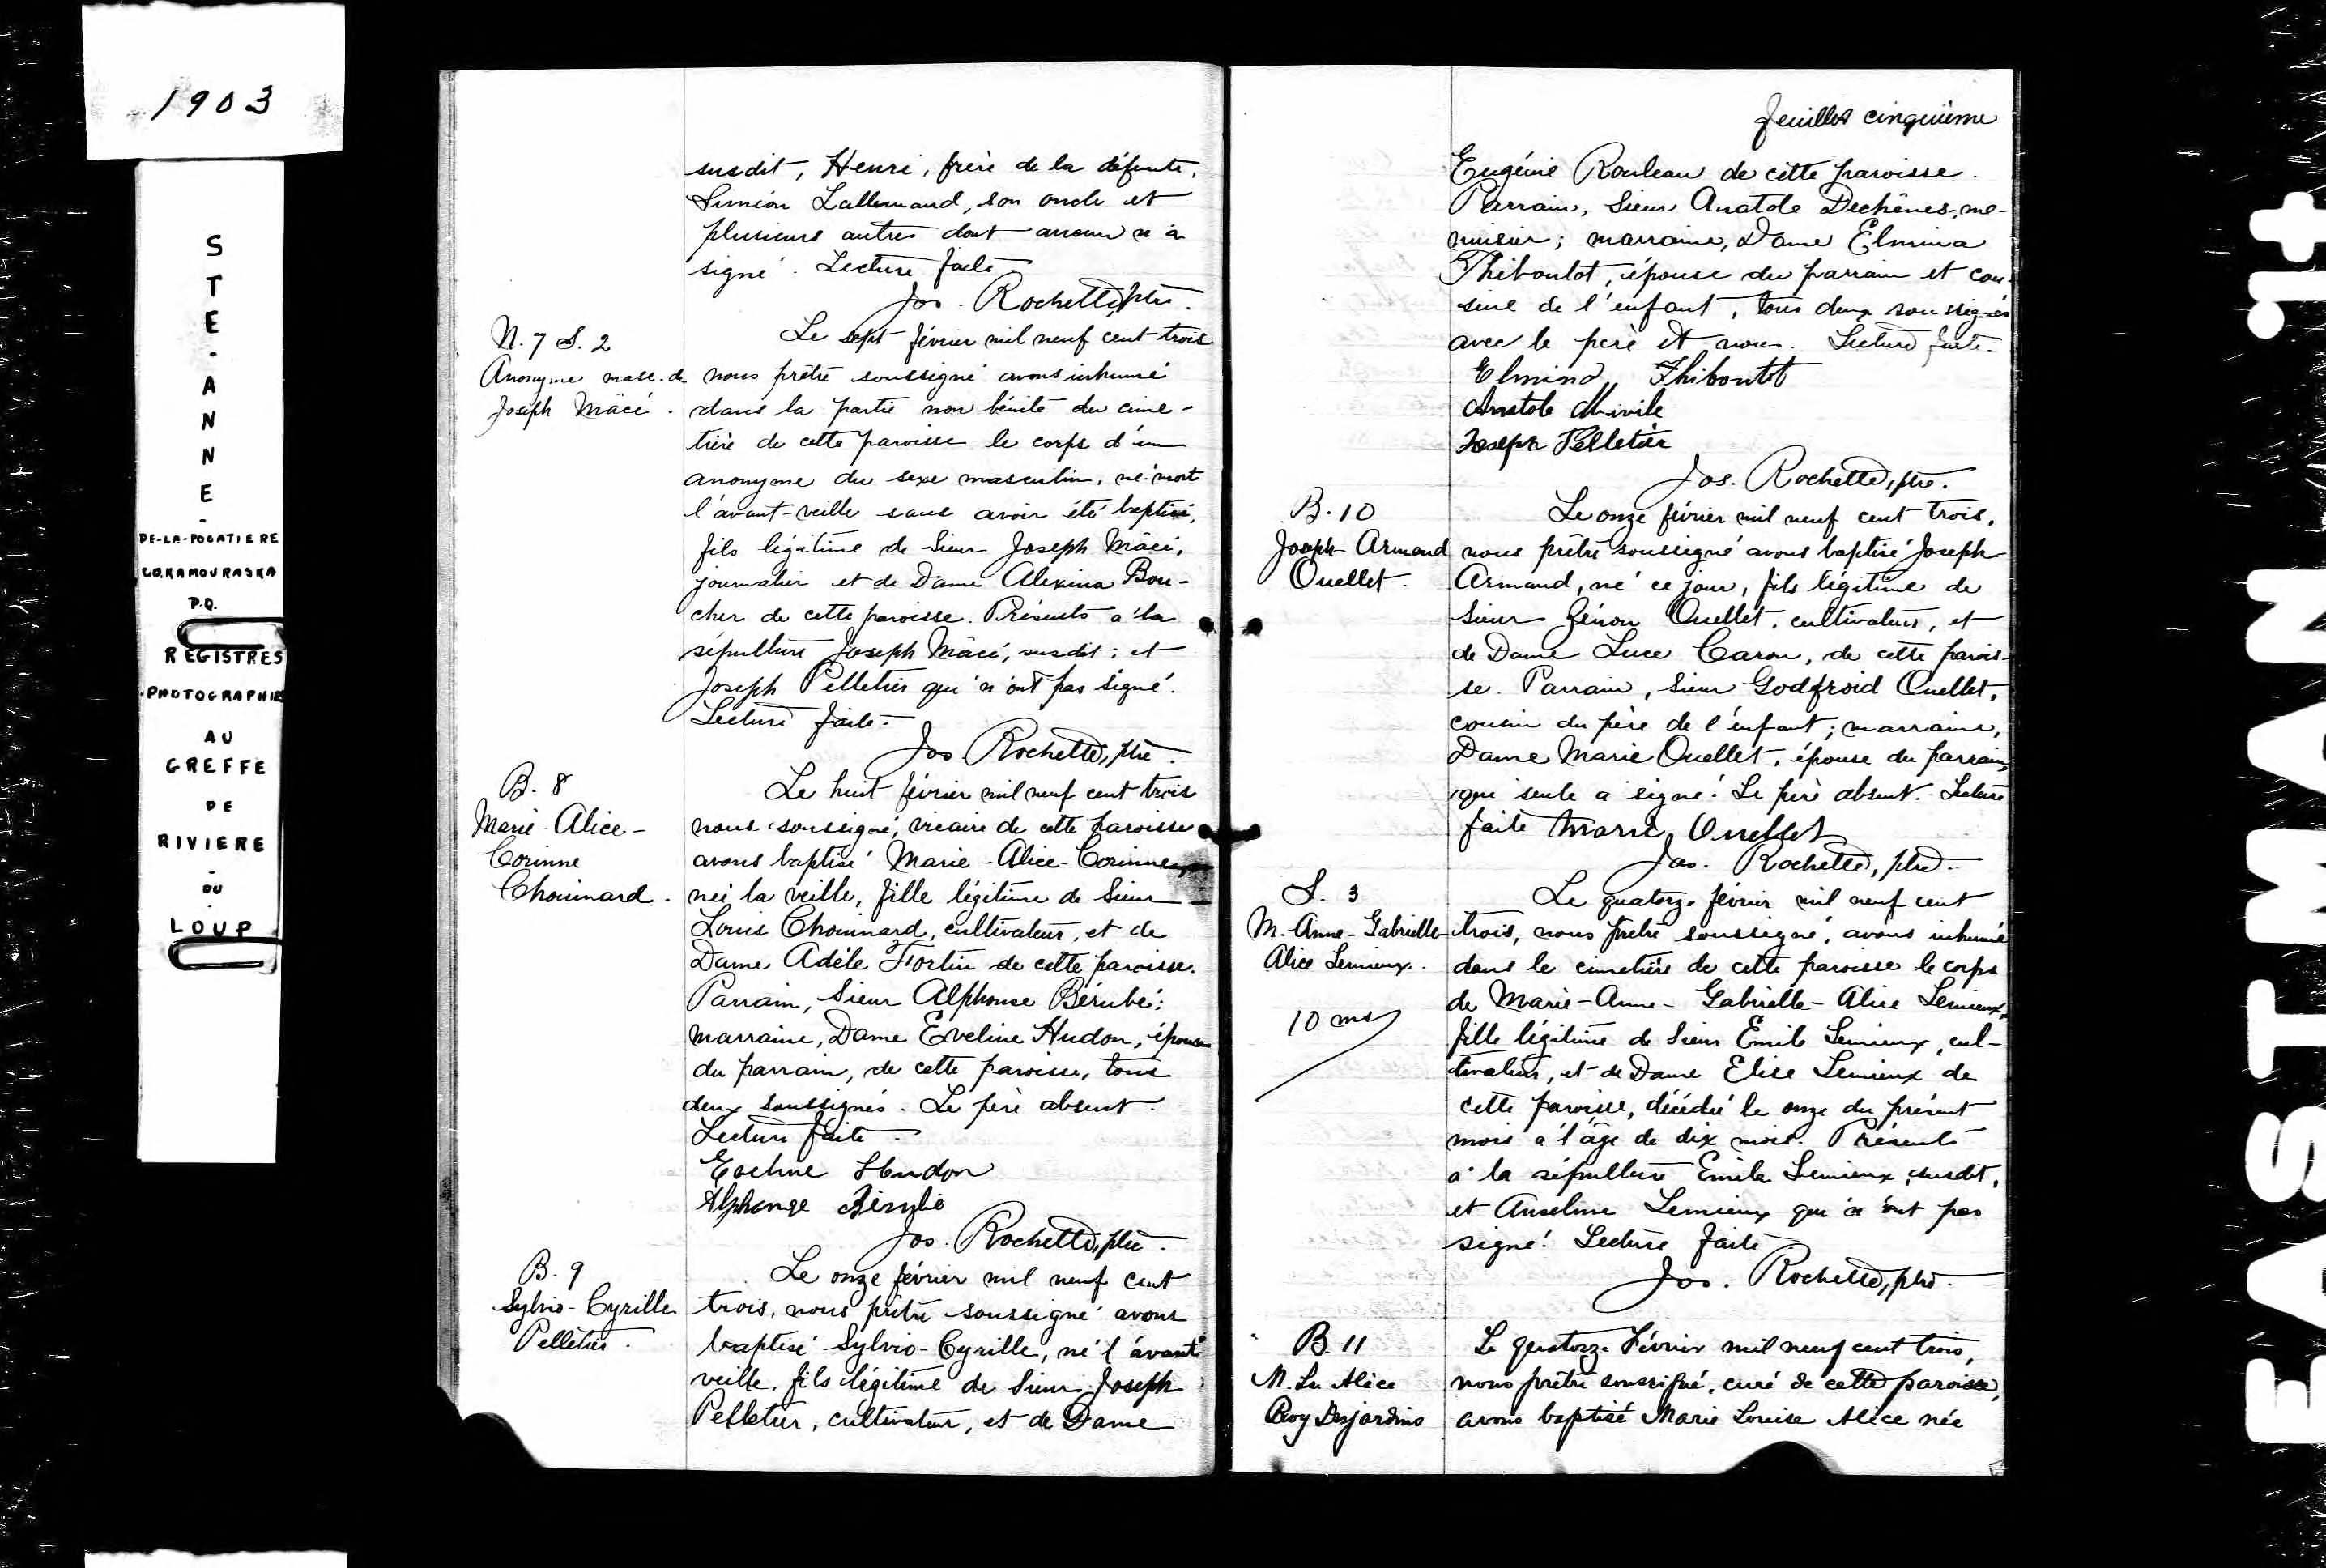 1903
STE-ANNE-
DE-LA-POCATIERE
CO. KAMOURASKA
P.Q.
REGISTRES
PHOTOGRAPHIE
AU
GREFFE
DE
RIVIERE
-
DU
-
LOUP
susdit, Henri, frère de la défunte,
Siméon Lallemand, son oncle et
plusieurs autres dont aucun n'a
signé. Lecture faite
Jos. Rochette, ptre.
N. 7 S. 2
Anonyme masc. de
Joseph Mâcé.
Le sept février mil neuf cent trois
nous prêtre soussigné avons inhumé
dans la partie non bénite du cime-
tière de cette paroisse le corps d'un
anonyme du sexe masculin, né-mort
l'avant-veille sans avoir été baptisé,
fils légitime de Sieur Joseph Mâcé,
journalier et de Dame Alexina Bou-
cher de cette paroisse. Présents à la
sépulture Joseph Mâcé, susdit, et
Joseph Pelletier qui n'ont pas signé.
Lecture faite.
Jos Rochette, ptre.
B. 8
Marie-Alice-
Corinne
Chouinard.
Le huit février mil neuf cent trois
nous soussigné, vicaire de cette paroisse
avons baptisé Marie-Alice-Corinne
née la veille, fille légitime de Sieur
Louis Chouinard, cultivateur, et de
Dame Adèle Fortin de cette paroisse.
Parrain, Sieur Alphonse Bérubé;
marraine, Dame Eveline Hudon, épouse
du parrain, de cette paroisse, tous
deux soussignés. Le père absent.
Lecture faite.
Eveline Hudon
Alphonse Bérubé
Jos. Rochette, ptre.
B. 9
Sylvio-Cyrille
Pelletier.
Le onze février mil neuf cent
trois, nous prêtre soussigné avons
baptisé Sylvio-Cyrille, né l'avant
veille, fils légitime de Sieur Joseph
Pelletier, cultivateur, et de Dame
feuillet cinquième
Eugénie Rouleau de cette paroisse.
Parrain, Sieur Anatole Dechênes, me-
nuisier; marraine, Dame Elmina
Thiboutot, épouse du parrain et cou-
sine de l'enfant, tous deux soussignés
avec le père et nous. Lecture faite.
Elmina Thiboutot
Anatole Miville
Joseph Pelletier
Jos. Rochette, ptre.
B. 10
Joseph Armand
Ouellet.
Le onze février mil neuf cent trois,
nous prêtre soussigné avons baptisé Joseph
Armand, né ce jour, fils légitime de
Sieur Zénon Ouellet, cultivateur, et
de Dame Luce Caron, de cette parois-
se. Parrain, Sieur Godfroid Ouellet,
cousin du père de l'enfant; marraine,
Dame Marie Ouellet, épouse du parrain,
qui seule a signé. Le père absent. Lecture
faite Marie Ouellet
Jos. Rochette, ptre.
S. 3
M.-Anne-Gabrielle
Alice Lemieux.
10 ms
Le quatorze février mil neuf cent
trois, nous prêtre soussigné, avons inhumé
dans le cimetière de cette paroisse le corps
de Marie-Anne-Gabrielle-Alice Lemieux,
fille légitime de Sieur Emile Lemieux, cul-
tivateur, et de Dame Elise Lemieux de
cette paroisse, décédée le onze du présent
mois à l'âge de dix mois. Présents
à la sépulture Emile Lemieux, susdit,
et Anselme Lemieux qui n'ont pas
signé. Lecture faite
Jos. Rochette, ptre.
B. 11
M. Ls Alice
Roy Desjardins
Le quatorze Février mil neuf cent trois,
nous prêtre soussigné, curé de cette paroisse,
avons baptisé Marie Louise Alice née
EASTMAN